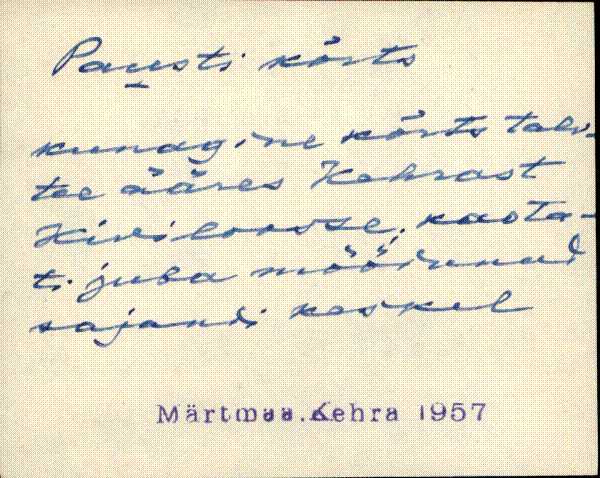 Pausti kõrts
kunagine kõrts taliv-
tee ääres Kehrast
Kiviloosse, kaota-
ti juba möödunud
sajandi keskel
Märtmaa. Kehra 1957